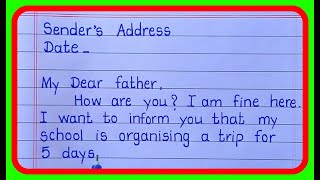 Sender's Address
Date_
My Dear father,
How are you? I am fine here.
I want to inform you that my
school is organising a trip for
5 days